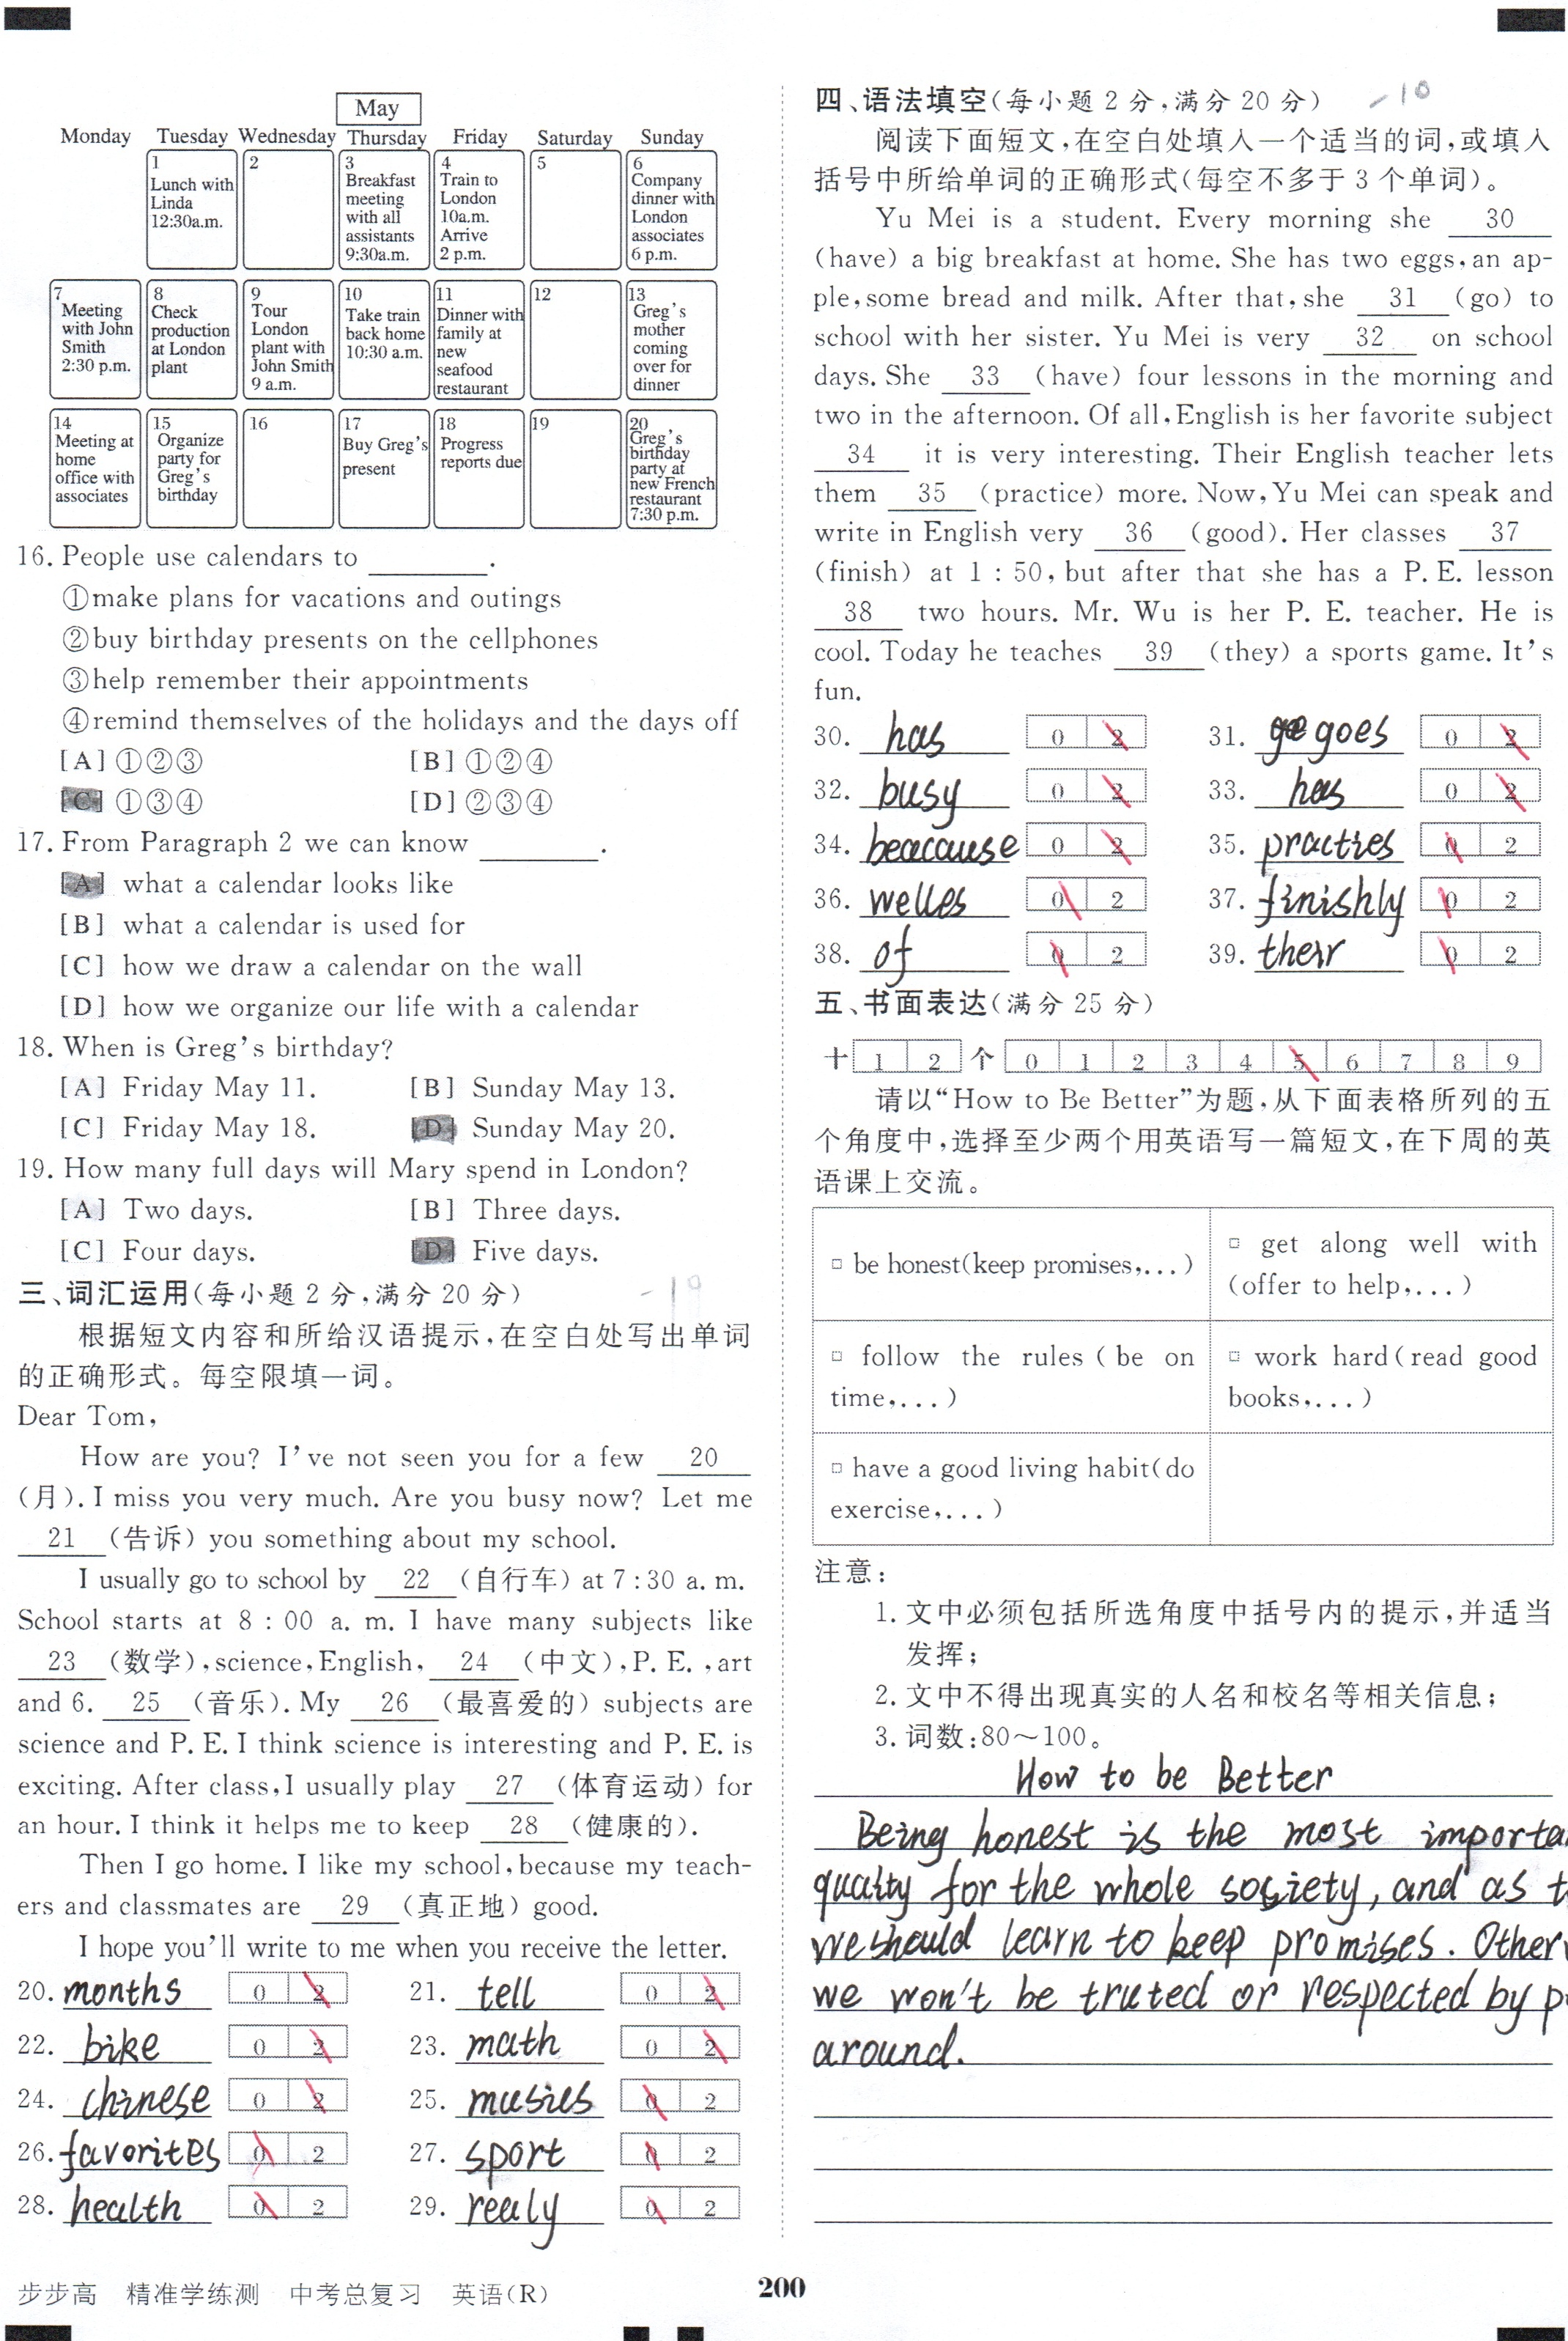 May
Monday Tuesday Wednesday Thursday Friday Saturday Sunday
1
Lunch with
Linda
12:30a.m.
2
3
Breakfast
meeting
with all
assistants
9:30a.m.
4
Train to
London
10a.m.
Arrive
2 p.m.
5
6
Company
dinner with
London
associates
6 p.m.
7
Meeting
with John
Smith
2:30 p.m.
8
Check
production
at London
plant
9
Tour
London
plant with
John Smith
9 a.m.
10
Take train
back home
10:30 a.m.
11
Dinner with
family at
new
seafood
restaurant
12
13
Greg's
mother
coming
over for
dinner
14
Meeting at
home
office with
associates
15
Organize
party for
Greg's
birthday
16
17
Buy Greg's
present
18
Progress
reports due
19
20
Greg's
birthday
party at
new French
restaurant
7:30 p.m.
16. People use calendars to ________.
①make plans for vacations and outings
②buy birthday presents on the cellphones
③help remember their appointments
④remind themselves of the holidays and the days off
[A] ①②③ [B] ①②④
[C] ①③④ [D] ②③④
17. From Paragraph 2 we can know ________.
[A] what a calendar looks like
[B] what a calendar is used for
[C] how we draw a calendar on the wall
[D] how we organize our life with a calendar
18. When is Greg's birthday?
[A] Friday May 11. [B] Sunday May 13.
[C] Friday May 18. [D] Sunday May 20.
19. How many full days will Mary spend in London?
[A] Two days. [B] Three days.
[C] Four days. [D] Five days.
三、词汇运用(每小题 2 分,满分 20 分) -19
根据短文内容和所给汉语提示,在空白处写出单词
的正确形式。每空限填一词。
Dear Tom,
How are you? I've not seen you for a few 20
(月). I miss you very much. Are you busy now? Let me
21 (告诉) you something about my school.
I usually go to school by 22 (自行车) at 7:30 a. m.
School starts at 8 : 00 a. m. I have many subjects like
23 (数学),science,English, 24 (中文),P. E. ,art
and 6. 25 (音乐). My 26 (最喜爱的) subjects are
science and P. E. I think science is interesting and P. E. is
exciting. After class,I usually play 27 (体育运动) for
an hour. I think it helps me to keep 28 (健康的).
Then I go home. I like my school,because my teach-
ers and classmates are 29 (真正地) good.
I hope you'll write to me when you receive the letter.
20. months 0 2 21. tell 0 2
22. bike 0 2 23. math 0 2
24. chinese 0 2 25. musics 0 2
26. favorites 0 2 27. sport 0 2
28. health 0 2 29. realy 0 2
四、语法填空(每小题 2 分,满分 20 分) -10
阅读下面短文,在空白处填入一个适当的词,或填入
括号中所给单词的正确形式(每空不多于 3 个单词)。
Yu Mei is a student. Every morning she 30
(have) a big breakfast at home. She has two eggs,an ap-
ple,some bread and milk. After that,she 31 (go) to
school with her sister. Yu Mei is very 32 on school
days. She 33 (have) four lessons in the morning and
two in the afternoon. Of all,English is her favorite subject
34 it is very interesting. Their English teacher lets
them 35 (practice) more. Now,Yu Mei can speak and
write in English very 36 (good). Her classes 37
(finish) at 1 : 50,but after that she has a P. E. lesson
38 two hours. Mr. Wu is her P. E. teacher. He is
cool. Today he teaches 39 (they) a sports game. It's
fun.
30. has 0 2 31. goes 0 2
32. busy 0 2 33. has 0 2
34. beacause 0 2 35. practies 0 2
36. welles 0 2 37. finishly 0 2
38. of 0 2 39. their 0 2
五、书面表达(满分 25 分)
十 1 2 个 0 1 2 3 4 5 6 7 8 9
请以“How to Be Better”为题,从下面表格所列的五
个角度中,选择至少两个用英语写一篇短文,在下周的英
语课上交流。
□ be honest(keep promises,...)
□ get along well with
(offer to help,...)
□ follow the rules (be on
time,...)
□ work hard(read good
books,...)
□ have a good living habit(do
exercise,...)
注意:
1. 文中必须包括所选角度中括号内的提示,并适当
发挥;
2. 文中不得出现真实的人名和校名等相关信息;
3. 词数:80～100。
How to be Better
Being honest is the most importa
quality for the whole society, and as t
we should learn to keep promises. Other
we won't be truted or respected by p
around.
步步高 精准学练测 中考总复习 英语(R)
200